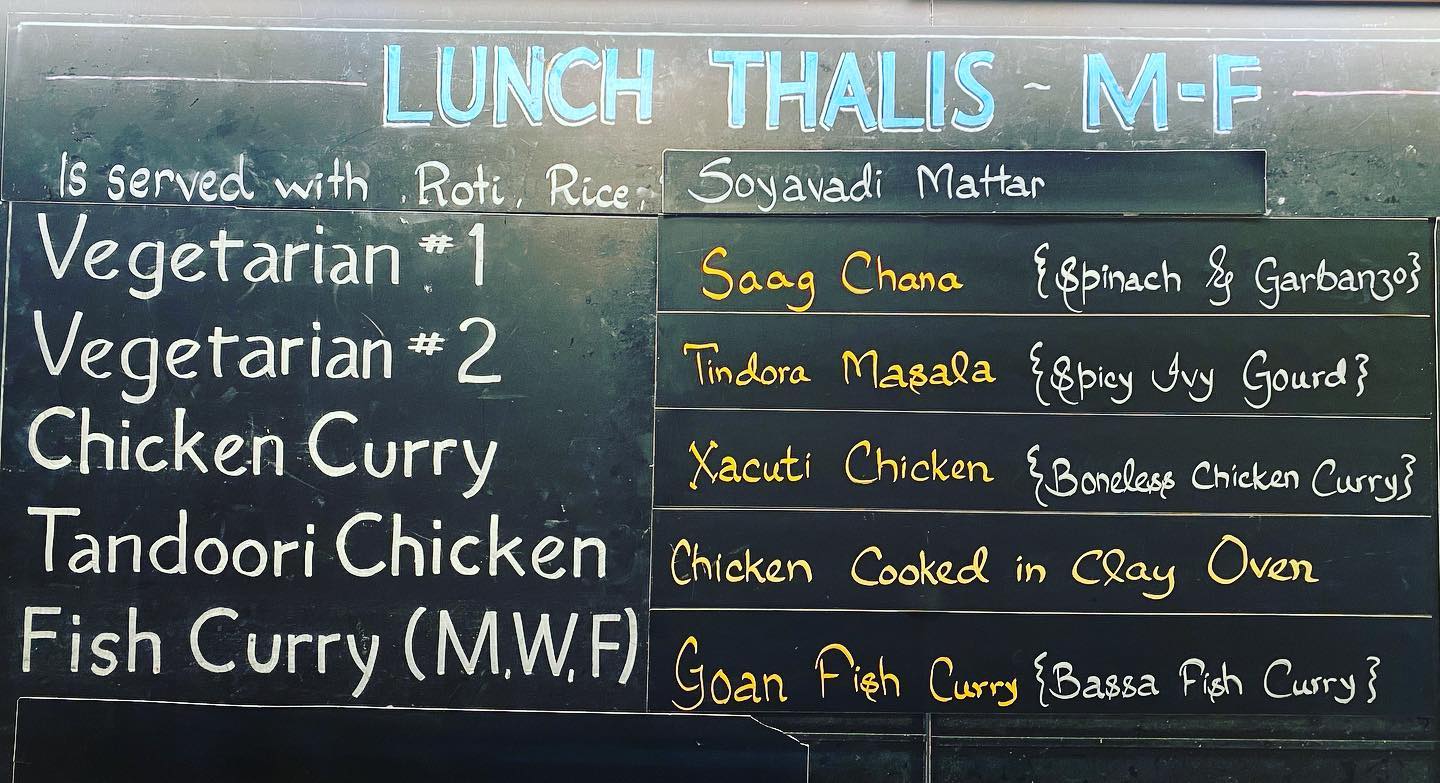 LUNCH THALIS ~ M-F
Is served with Roti, Rice, Soyavadi Mattar
Vegetarian #1 Saag Chana {Spinach & Garbanzo}
Vegetarian #2 Tindora Masala {Spicy Ivy Gourd}
Chicken Curry Xacuti Chicken {Boneless Chicken Curry}
Tandoori Chicken Chicken Cooked in Clay Oven
Fish Curry (M,W,F) Goan Fish Curry {Bassa Fish Curry}